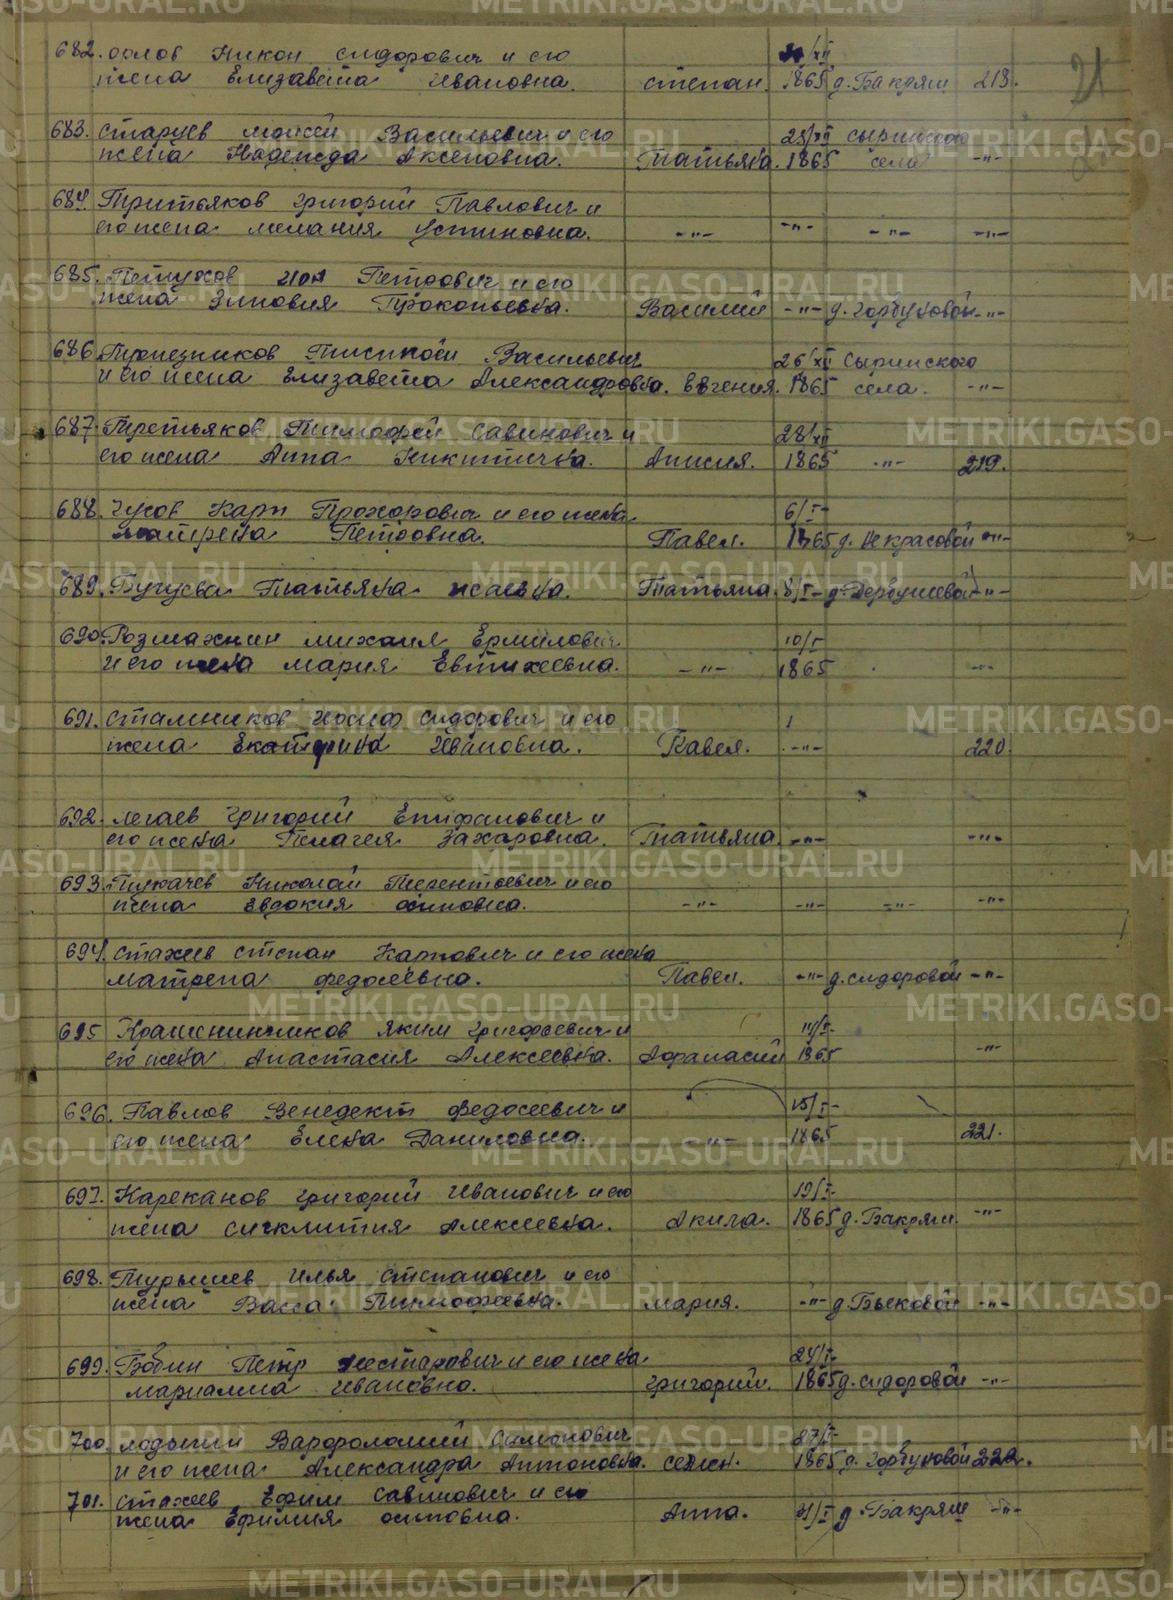 21
682. Орлов Никон Сидорович и его
жена Елизавета Ивановна. Степан. 20/XII 1865 д. Бакряш 218.
683. Старцев Моисей Васильевич и его
жена Надежда Аксеновна. Татьяна. 25/XII 1865 Сыринского села -"-
684. Тритьяков Григорий Павлович и
его жена Мелания Устиновна. -"- -"- -"- -"-
685. Петухов Иов Петрович и его
жена Зиновия Прокопьевна. Василий -"- д. Горбуновой -"-
686. Васильевич
и его жена Елизавета Александровна. Евгения. 26/XII 1865 Сыринского села. -"-
687. Третьяков Тимофей Савинович и
его жена Анна Никитична. Анисия. 28/XII 1865 -"- 219.
688. Чусов Карп Прохорович и его жена
Матрена Петровна. Павел. 6/I- 1865 д. Некрасовой -"-
689. Татьяна Исаевна. Татьяна. 8/I- д. -"-
690. Размахнин Михаил Ермилович
и его жена Мария Евтихеевна. -"- 10/I 1865 -"-
691. Стальников Иосиф Сидорович и его
жена Екатерина Ивановна. Павел. -"- 220.
692. Легаев Григорий Епифанович и
его жена Пелагея Захаровна. Татьяна -"- -"-
693. Пукачев Николай Терентьевич и его
жена Евдокия Осиповна. -"- -"- -"- -"-
694. Стахеев Степан Карпович и его жена
Матрена Федосеевна. Павел. -"- д. Сидоровой -"-
695 Крашенинников Яким Григорьевич и
его жена Анастасия Алексеевна. Афанасий 14/I- 1865 -"-
696. Павлов Венедект Федосеевич и
его жена Елена Даниловна. -"- 15/I- 1865 221.
697. Кареканов Григорий Иванович и его
жена Сиклития Алексеевна. Акила. 19/I- 1865 д. Бакряш. -"-
698. Турышев Илья Степанович и его
жена Васса Тимофеевна. Мария. -"- д. Быковой -"-
699. Бобин Петр Нестарович и его жена
Мариамна Ивановна. Григорий. 24/I- 1865 д. Сидоровой -"-
700. Лодыгин Варфоломей Симонович
и его жена Александра Антоновна. Семен. 27/I- 1865 д. Горбуновой 222.
701. Стахеев Ефим Савинович и его
жена Ефимия Осиповна. Анна. 31/I д. Бакряш -"-
METRIKI.GASO-URAL.RU